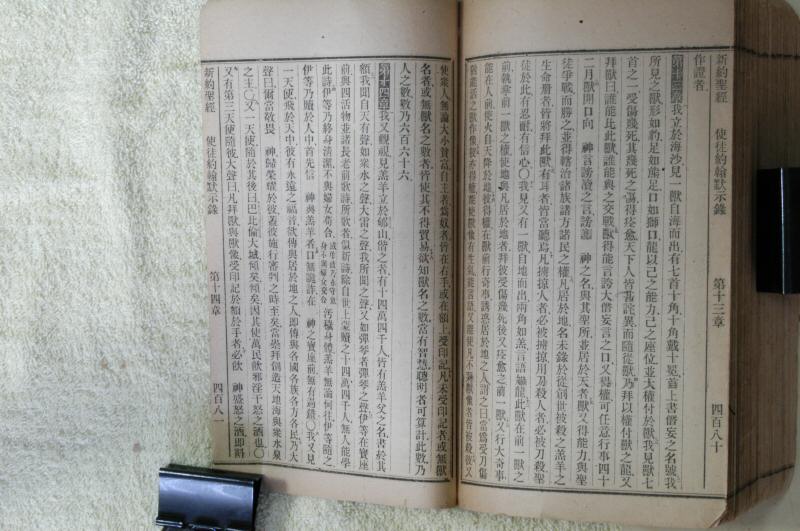 新約聖經 使徒約翰默示錄 第十三章 四百八十
作證者
第十三章 我立於海沙見一獸自海而出有七首十角十角戴十冕首上書僭妄之名號我
所見之獸形如豹足如熊足口如獅口龍以己之能力己之座位並大權付於獸我見獸七
首之一受傷幾死其幾死之傷得痊愈天下人皆詫異而隨從獸乃拜以權付獸之龍又
拜獸曰誰能比此獸誰能與之交戰獸得能言誇大僭妄言之口又得權可任意行事四十
二月獸開口向 神言謗讟之言謗讟 神之名與其聖所並居於天者獸又得能力與聖
徒爭戰而勝之並得轄治諸族諸方諸民之權凡居於地名未錄於從創世被殺之羔羊之
生命册者皆將拜此獸有耳者皆當聽焉凡擄掠人者必被擄掠用刀殺人者必被刀殺聖
徒於此有忍耐有信心〇我見又有一獸自地而出兩角如羔言語如龍此獸在前一獸之
前執掌前一獸之權使地與凡居於地者拜彼受傷幾死後又痊愈之前一獸又行大奇事
能在人前使火自天降於地彼得權在獸前行奇事誘惑居於地之人謂之曰當爲受刀傷
猶能活之獸作像彼又得權能使獸像有生氣能言語又能使凡不拜獸像者皆被殺彼又
使衆人無論大小貧富自主者爲奴者皆在右手或在額上受印記凡未受印記者或無獸
名者或無獸名之數者皆使其不得貿易欲知獸名之數當有智慧聰明者可算計此數乃
人之數數乃六百六十六
第十四章 我又觀視見羔羊立於郇山偕之者有十四萬四千人皆有羔羊父之名書於其
額我聞自天有聲如衆水之聲大雷之聲我所聞之聲又如彈琴者彈琴之聲伊等在寶座
前與四活物並諸長老前歌詩所歌者似新詩除自世上蒙贖之十四萬四千人無人能學
此詩伊等乃終身清潔不與婦女苟合汚穢身體羔羊無論何往伊等隨之
伊等乃贖於人中首先信 神與羔羊者口無詭詐在 神之寶座前無有過錯〇我又見
一天使飛於天中彼有永遠之福音欲傳與居於地之人即傳與各國各族各方各民乃大
聲曰爾當敬畏 神歸榮耀於彼蓋彼施行審判之時至矣當崇拜創造天地海與衆水泉
之主〇又一天使隨於其後曰巴比倫大城傾矣傾矣因其使萬民飲邪淫干怒之酒也〇
又有第三天使隨彼大聲曰凡拜獸與獸像受印記於額於手者必飲 神盛怒之酒即斟
新約聖經 使徒約翰默示錄 第十四章 四百八一